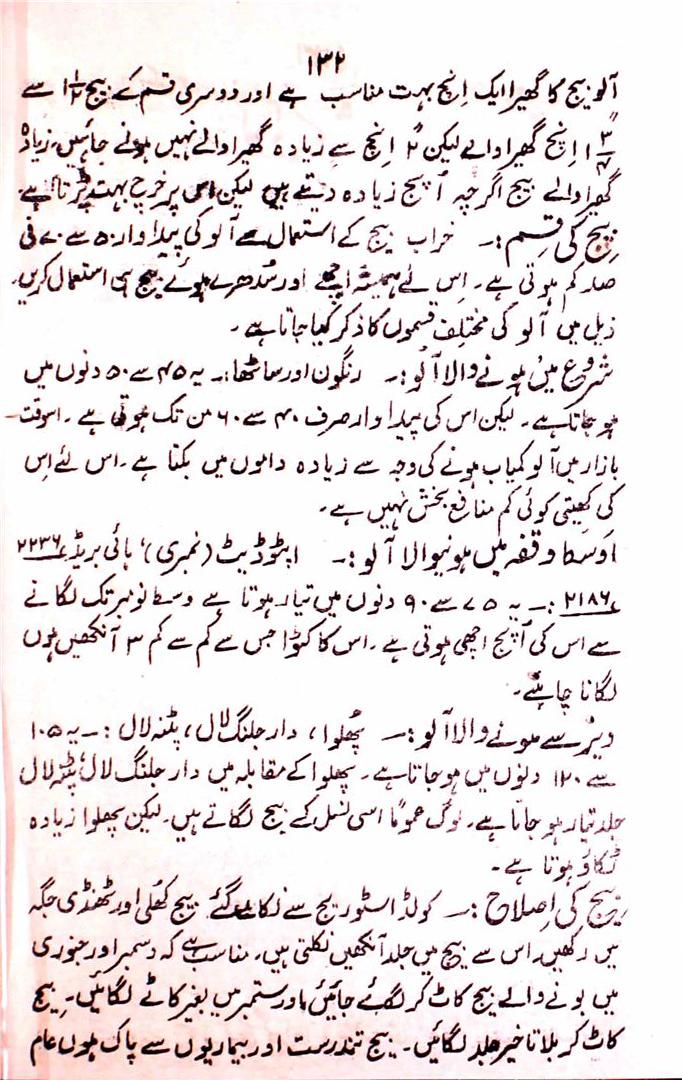 ۱۳۲
آلو بیج کا گھیرا ایک اِنچ بہت مناسب ہے اور دوسری قسم کے بیج ۱½ سے
۱¾ اِنچ گھیرا والے لیکن ۲ اِنچ سے زیادہ گھیرا والے نہیں ہونے چاہئیں۔ زیادہ
گھیرا والے بیج اگرچہ اُپج زیادہ دیتے ہیں لیکن اس پر خرچ بہت پڑتا ہے۔
بیج کی قسم :۔ خراب بیج کے استعمال سے آلو کی پیداوار ۵۰ سے ۷۰ فی
صد کم ہوتی ہے۔ اِس لئے ہمیشہ اچھے اور سُدھرے ہوئے بیج ہی استعمال کریں۔
ذیل میں آلو کی مختلف قسموں کا ذکر کیا جاتا ہے۔
شروع میں ہونے والا آلُو :۔ رنگون اور ساٹھا :۔ یہ ۴۵ سے ۵۰ دنوں میں
ہو جاتا ہے۔ لیکن اس کی پیداوار صرف ۴۰ سے ۶۰ من تک ہوتی ہے۔ اسوقت
بازار میں آلو کمیاب ہونے کی وجہ سے زیادہ داموں میں بکتا ہے۔ اس لئے اِس
کی کھیتی کوئی کم منافع بخش نہیں ہے۔
اوسط وقفہ میں ہونیوالا آلو :۔ اپٹوڈیٹ (نمبری)، ہائی بریڈ ۲۲۳۶،
۲۱۸۶، :۔ یہ ۷۵ سے ۹۰ دنوں میں تیار ہوتا ہے وسط نومبر تک لگانے
سے اس کی اُپج اچھی ہوتی ہے۔ اس کا ٹکڑا جس سے کم سے کم ۳ آنکھیں ہوں
لگانا چاہئے۔
دیر سے ہونے والا آلُو :۔ پھُلوا، دارجلنگ لال، پٹنہ لال :۔ یہ ۱۰۵
سے ۱۲۰ دنوں میں ہو جاتا ہے۔ پھلوا کے مقابلہ میں دارجلنگ لال، پٹنہ لال
جلد تیار ہو جاتا ہے۔ لوگ عموماً اسی نسل کے بیج لگاتے ہیں۔ لیکن پھلوا زیادہ
ٹکاؤ ہوتا ہے۔
بیج کی اِصلاح :۔ کولڈ اسٹوریج سے نکالے گئے بیج کھُلی اور ٹھنڈی جگہ
میں رکھیں۔ اس سے بیج میں جلد آنکھیں نکلتی ہیں۔ مناسب ہے کہ دسمبر اور جنوری
میں بونے والے بیج کاٹ کر لگائے جائیں اور ستمبر میں بغیر کاٹے لگائیں۔ بیج
کاٹ کر بلا تاخیر جلد لگائیں۔ بیج تندرست اور بیماریوں سے پاک ہوں عام